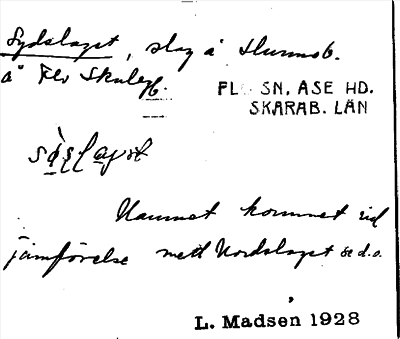 Sydslaget, slag å Hummeb.
å Flo Skuleg.
FLO SN, ASE HD.
SKARAB. LÄN
Namnet kommet vid
jämförelse med Nordslaget se d.o.
L. Madsen 1928